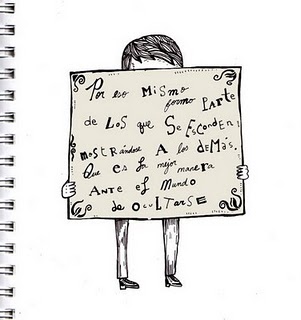 Por eso Mismo
formo Parte
de Los que Se Esconden:
mostrándose A los demás.
Que es la mejor manera
Ante el Mundo
de OcuLTarSE